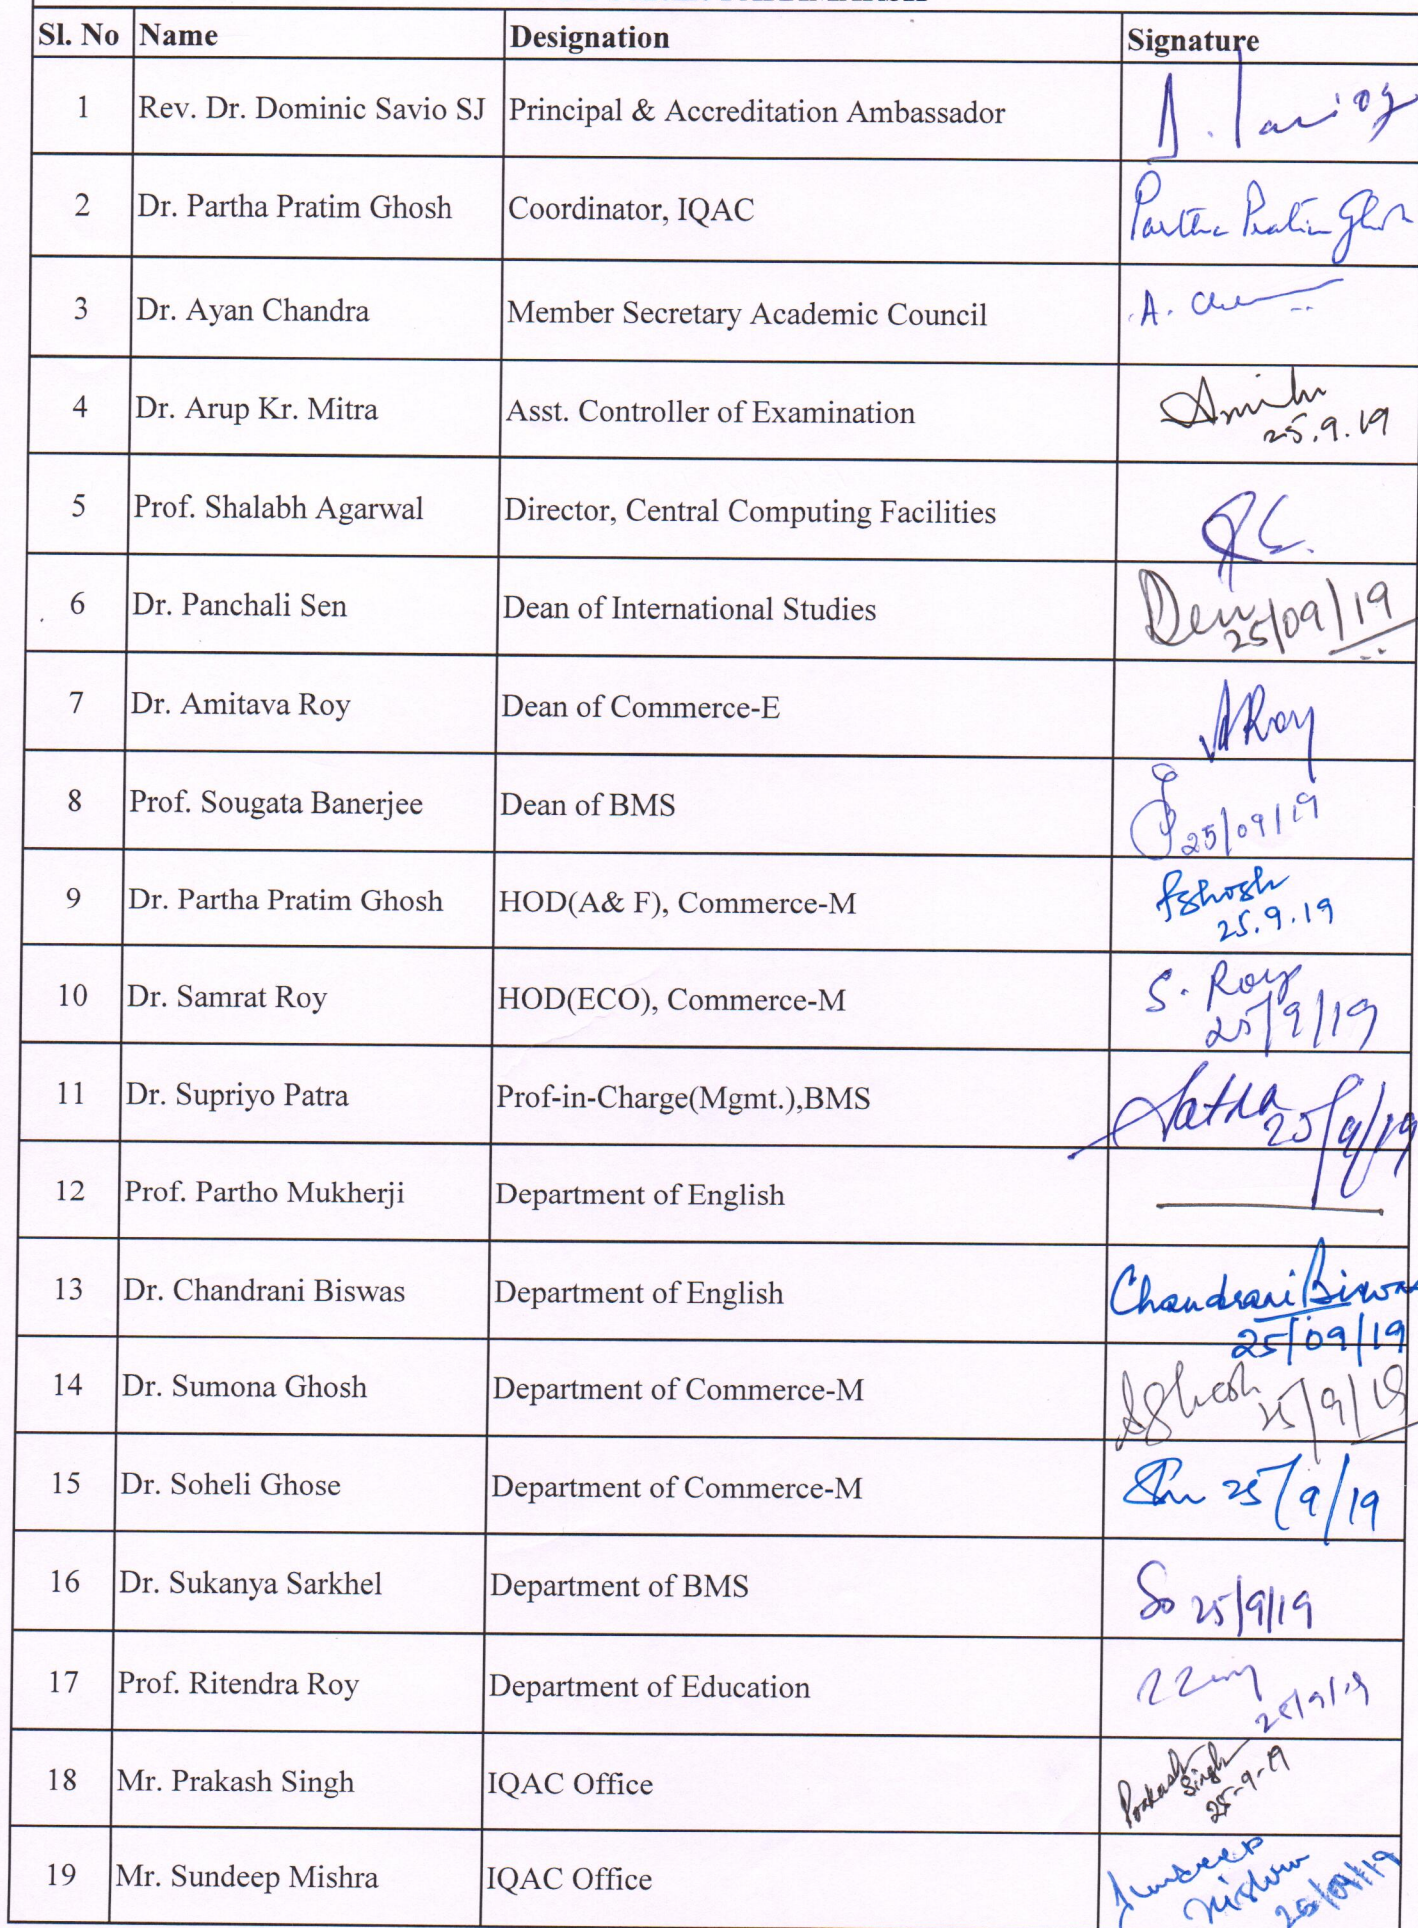 Sl. No Name Designation Signature
1 Rev. Dr. Dominic Savio SJ Principal & Accreditation Ambassador
2 Dr. Partha Pratim Ghosh Coordinator, IQAC Partha Pratim Ghosh
3 Dr. Ayan Chandra Member Secretary Academic Council A.
4 Dr. Arup Kr. Mitra Asst. Controller of Examination
25.9.19
5 Prof. Shalabh Agarwal Director, Central Computing Facilities
6 Dr. Panchali Sen Dean of International Studies
25/09/19
7 Dr. Amitava Roy Dean of Commerce-E ARoy
8 Prof. Sougata Banerjee Dean of BMS
25/09/19
9 Dr. Partha Pratim Ghosh HOD(A& F), Commerce-M PGhosh
25.9.19
10 Dr. Samrat Roy HOD(ECO), Commerce-M S. Roy
25/9/19
11 Dr. Supriyo Patra Prof-in-Charge(Mgmt.),BMS Patra
25/9/19
12 Prof. Partho Mukherji Department of English
13 Dr. Chandrani Biswas Department of English Chandrani Biswas
25/09/19
14 Dr. Sumona Ghosh Department of Commerce-M SGhosh 25/9/19
15 Dr. Soheli Ghose Department of Commerce-M 25/9/19
16 Dr. Sukanya Sarkhel Department of BMS 25/9/19
17 Prof. Ritendra Roy Department of Education
25/9/19
18 Mr. Prakash Singh IQAC Office Prakash
Singh
25-9-19
19 Mr. Sundeep Mishra IQAC Office Sundeep
Mishra
25/09/19